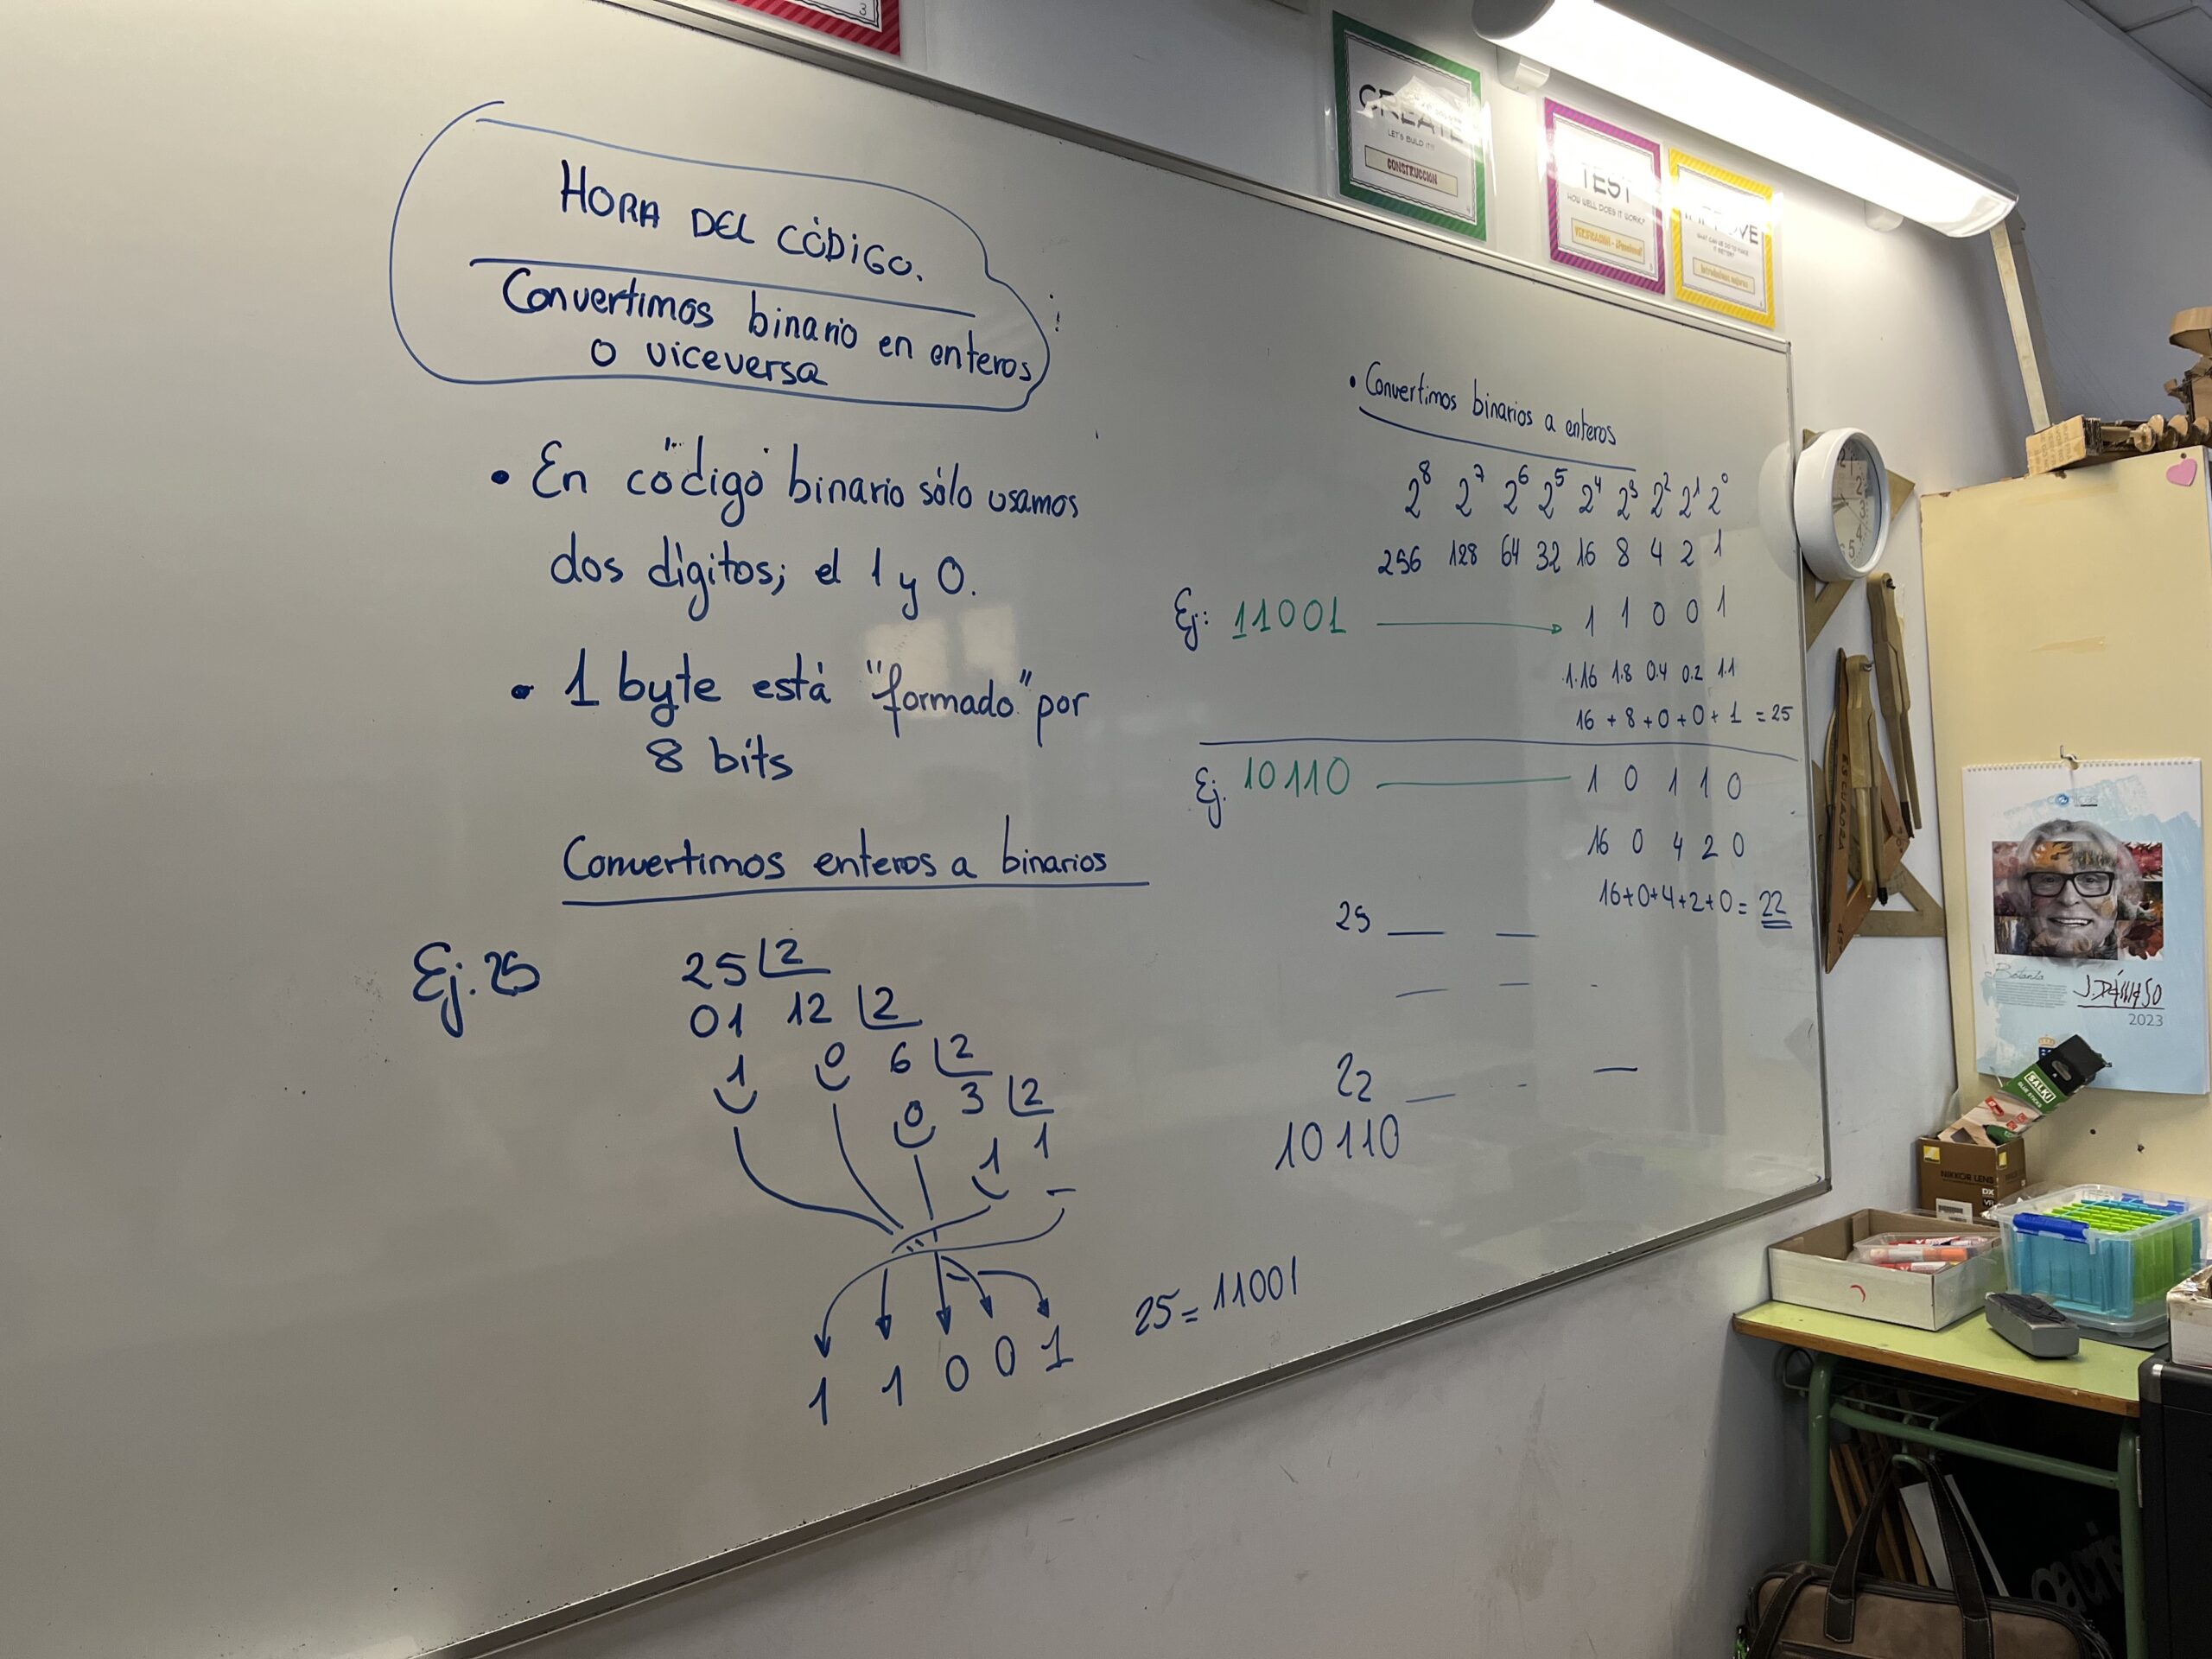 HORA DEL CÓDIGO.
Convertimos binario en enteros
o viceversa
• En código binario sólo usamos
dos dígitos; el 1 y 0.
• 1 byte está "formado" por
8 bits
Convertimos enteros a binarios
Ej. 25
25 2
01 12 2
1 0 6 2
0 3 2
1 1
1 1 0 0 1
25 = 11001
• Convertimos binarios a enteros
2⁸ 2⁷ 2⁶ 2⁵ 2⁴ 2³ 2² 2¹ 2⁰
256 128 64 32 16 8 4 2 1
Ej: 11001 → 1 1 0 0 1
1·16 1·8 0·4 0·2 1·1
16 + 8 + 0 + 0 + 1 = 25
Ej. 10110 — 1 0 1 1 0
16 0 4 2 0
16+0+4+2+0 = 22
25
22
10110
3
CREATE
LET'S BUILD IT!
CONSTRUCCIÓN
TEST
HOW WELL DOES IT WORK?
Botania
J. DÁMASO
2023
SALKI
NIKKOR LENS
DX
ESCUADRA